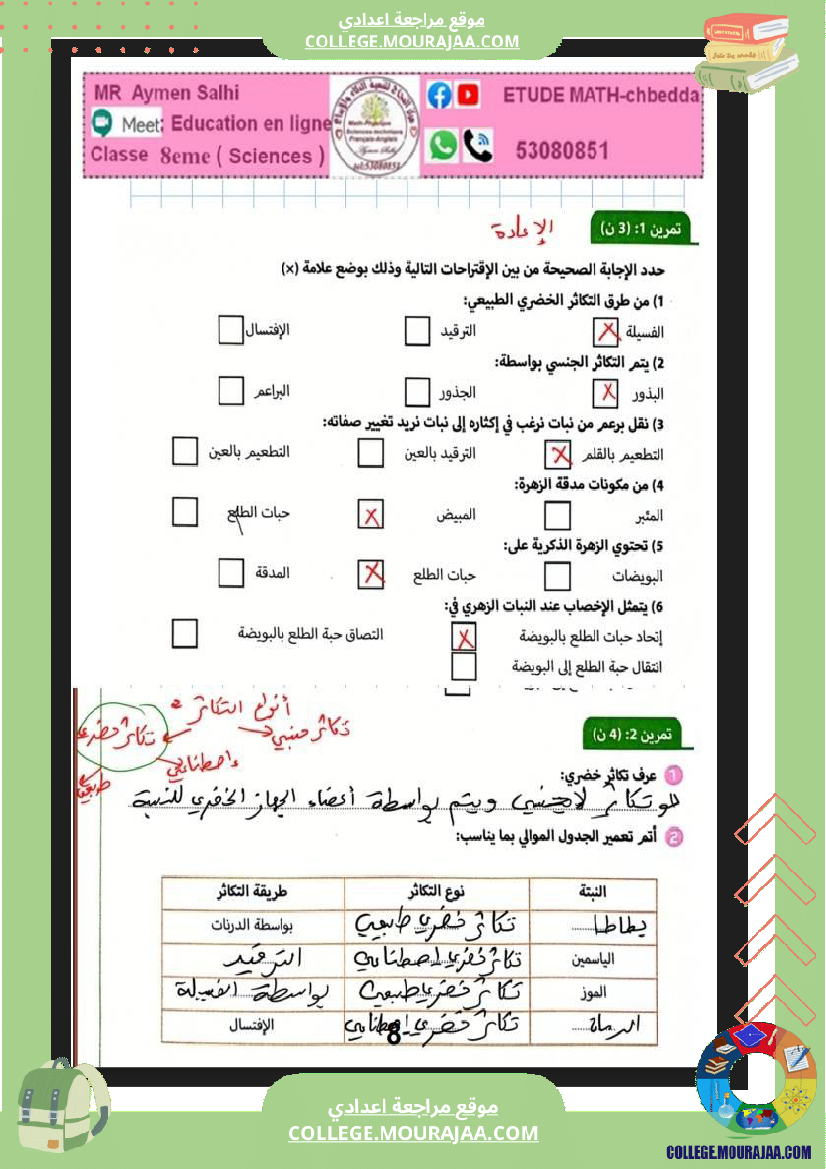 موقع مراجعة اعدادي
COLLEGE.MOURAJAA.COM
MR Aymen Salhi
ETUDE MATH-chbedda
Meet: Education en ligne
Classe 8eme ( Sciences )
53080851
تمرين 1: (3 ن)
الإعادة
حدد الإجابة الصحيحة من بين الإقتراحات التالية وذلك بوضع علامة (×)
1) من طرق التكاثر الخضري الطبيعي:
الفسيلة ☒ الترقيد ☐ الإفتسال ☐
2) يتم التكاثر الجنسي بواسطة:
البذور ☒ الجذور ☐ البراعم ☐
3) نقل برعم من نبات نرغب في إكثاره إلى نبات نريد تغيير صفاته:
التطعيم بالقلم ☒ الترقيد بالعين ☐ التطعيم بالعين ☐
4) من مكونات مدقة الزهرة:
المئبر ☐ المبيض ☒ حبات الطلع ☐
5) تحتوي الزهرة الذكرية على:
البويضات ☐ حبات الطلع ☒ المدقة ☐
6) يتمثل الإخصاب عند النبات الزهري في:
إتحاد حبات الطلع بالبويضة ☒ التصاق حبة الطلع بالبويضة ☐
انتقال حبة الطلع إلى البويضة ☐
أنواع التكاثر
تكاثر جنسي
تكاثر خضري
اصطناعي
طبيعي
تمرين 2: (4 ن)
1 عرف تكاثر خضري:
هو تكاثر لاجنسي ويتم بواسطة أعضاء الجهاز الخضري للنبتة
2 أتم تعمير الجدول الموالي بما يناسب:
النبتة نوع التكاثر طريقة التكاثر
بطاطا تكاثر خضري طبيعي بواسطة الدرنات
الياسمين تكاثر خضري اصطناعي الترقيد
الموز تكاثر خضري طبيعي بواسطة الفسيلة
الرمان تكاثر خضري اصطناعي الإفتسال
8
موقع مراجعة اعدادي
COLLEGE.MOURAJAA.COM
COLLEGE.MOURAJAA.COM